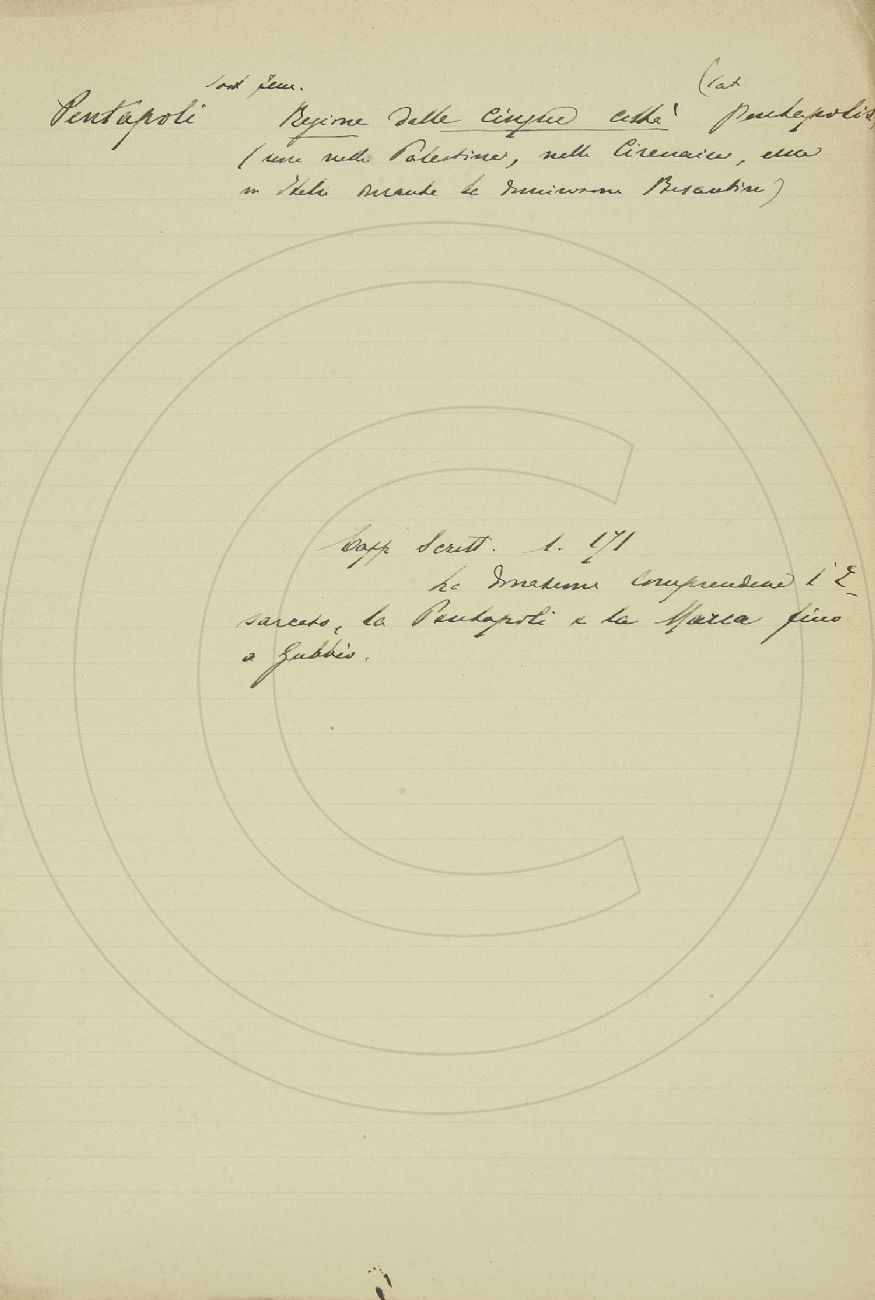 sost fem. (lat
Pentàpoli Regione delle cinque città Pentapolis,
(una nella Palestina, nella Cirenaica, una
in Italia durante la dominazione Bisantina)
Capp Scritt. 1. 171
La donazione comprendeva l'E-
sarcato, la Pentapoli e la Marca fino
a Gubbio.